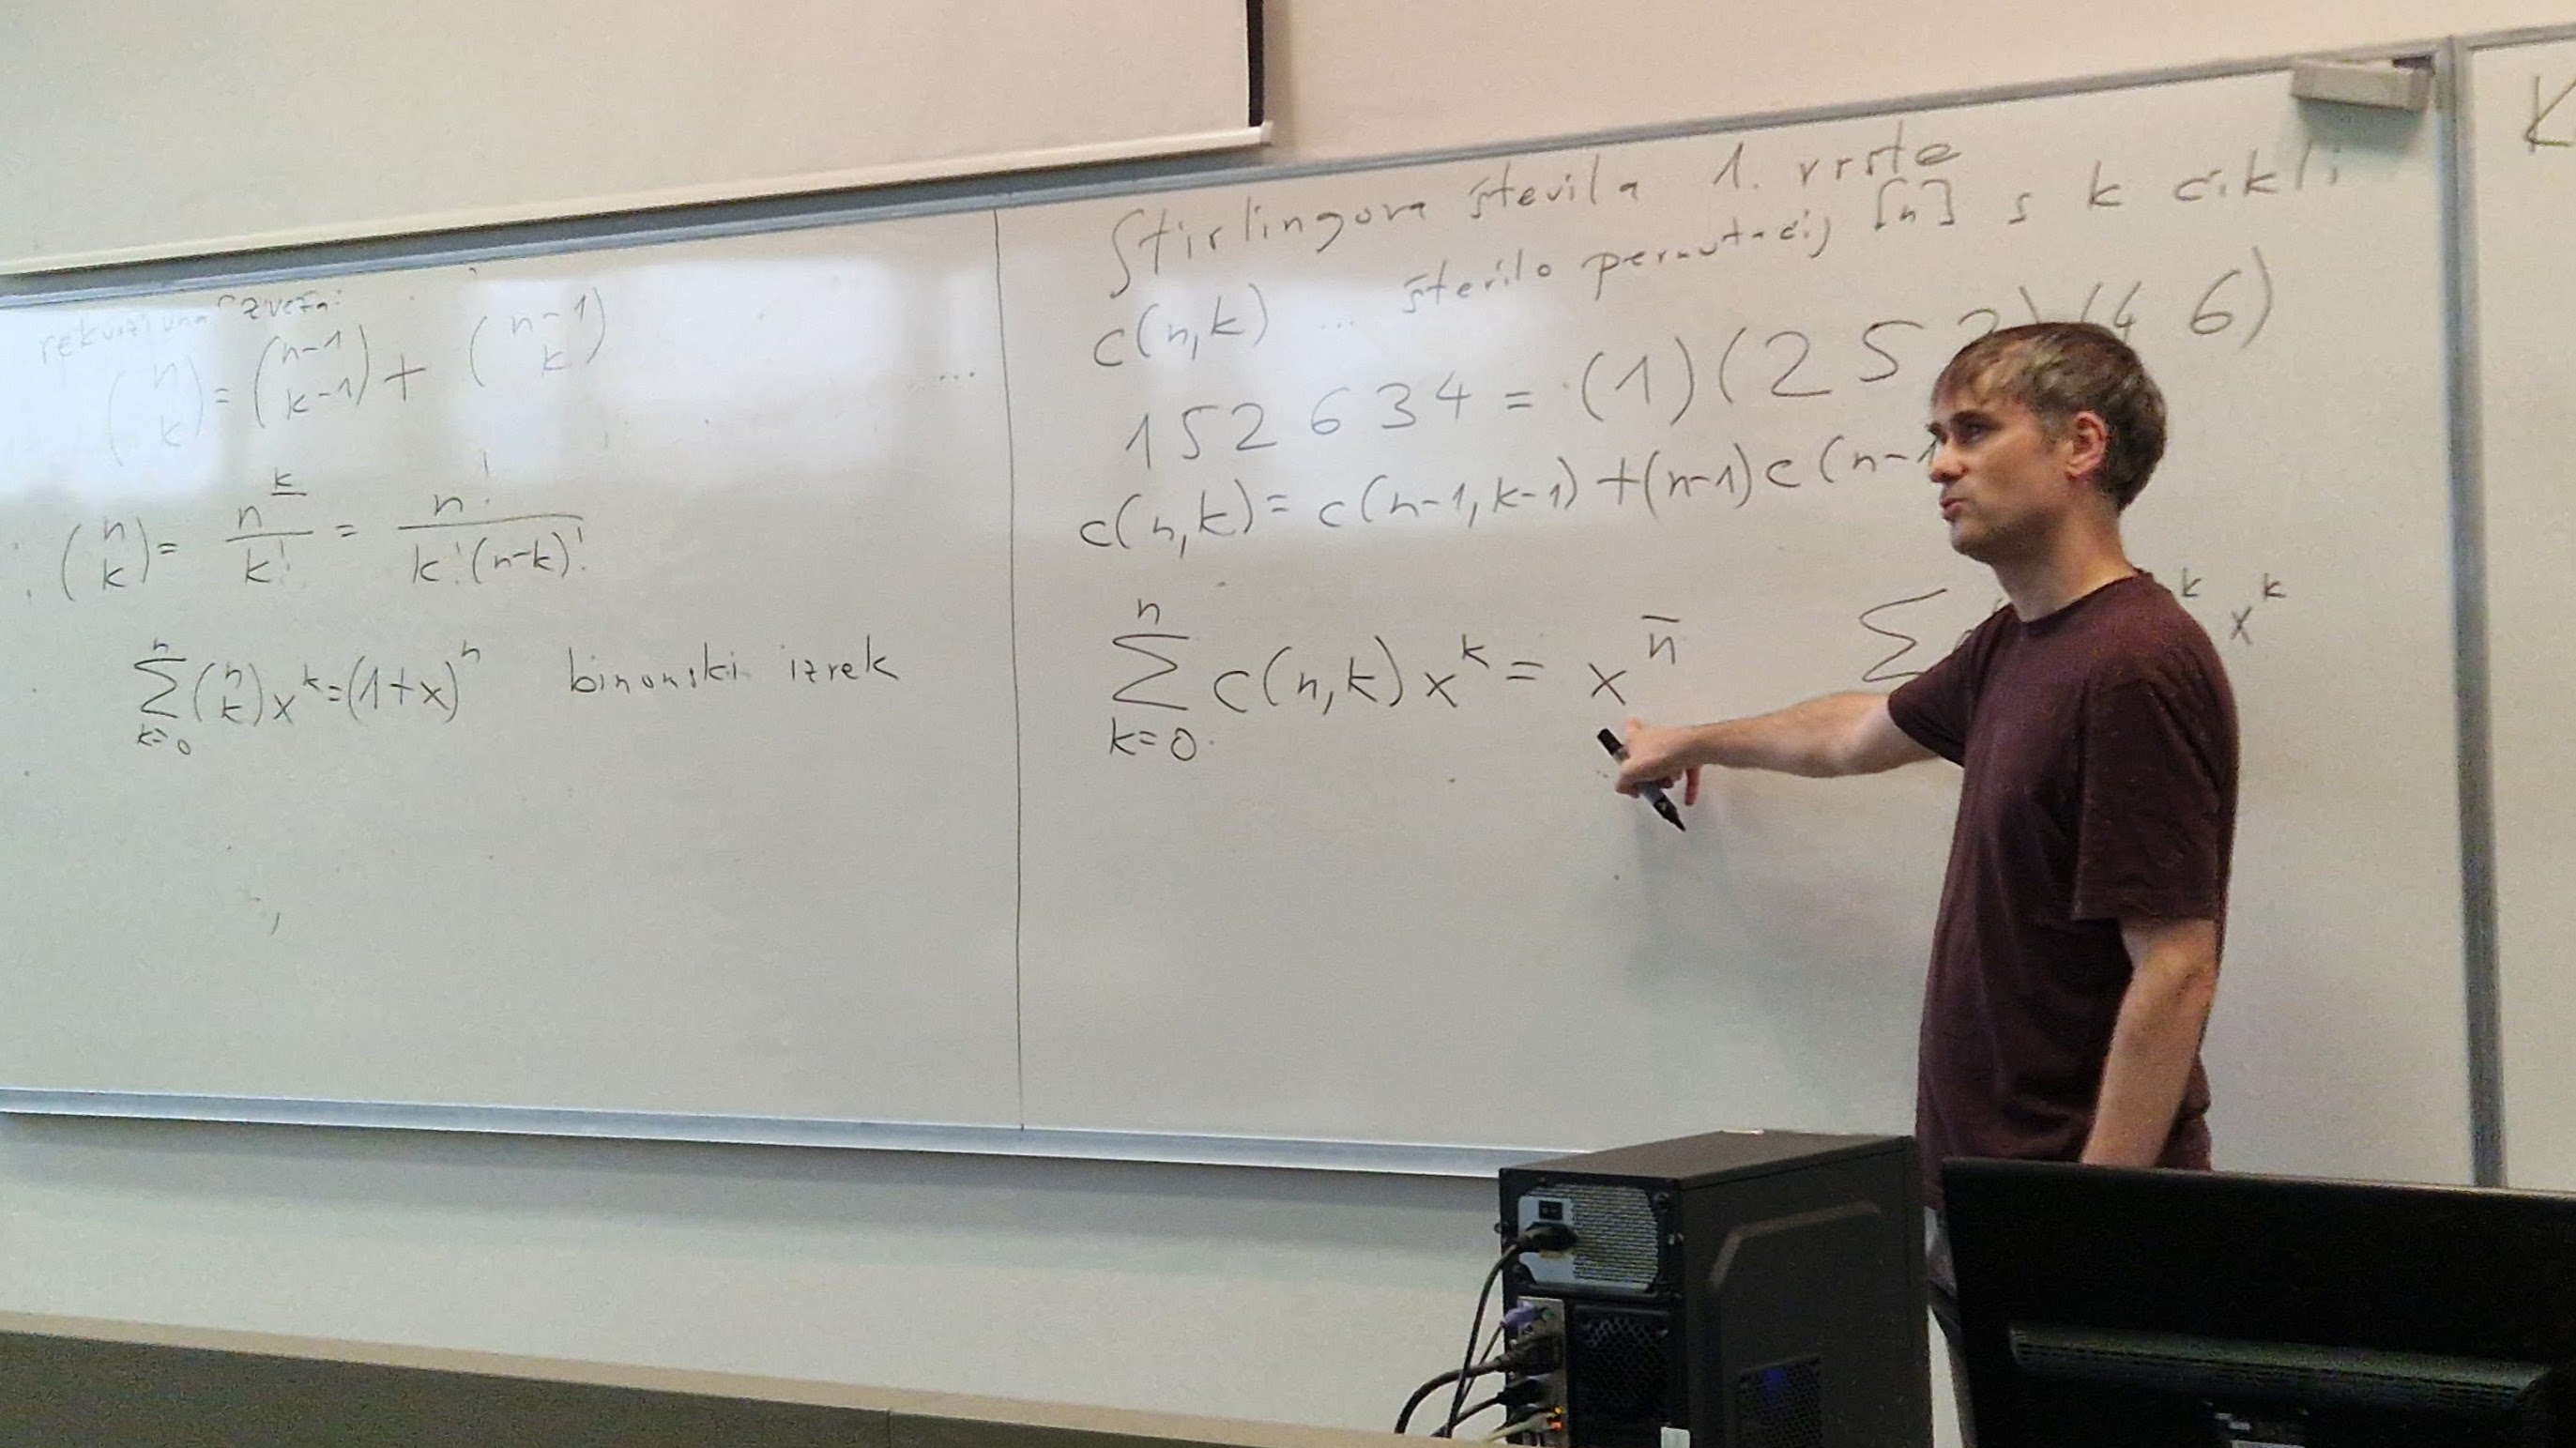 rekurzivna zveza:
(n k) = (n-1 k-1) + (n-1 k) ...
(n k) = n^{\underline{k}} / k! = n! / k!(n-k)!
∑_{k=0}^{n} (n k) x^k = (1+x)^n binomski izrek
Stirlingova števila 1. vrste
c(n,k) ... število permutacij [n] s k cikli
152634 = (1)(2 5 3)(4 6)
c(n,k) = c(n-1,k-1) + (n-1) c(n-1
∑_{k=0}^{n} c(n,k) x^k = x^{\overline{n}} ∑ k x^k
K